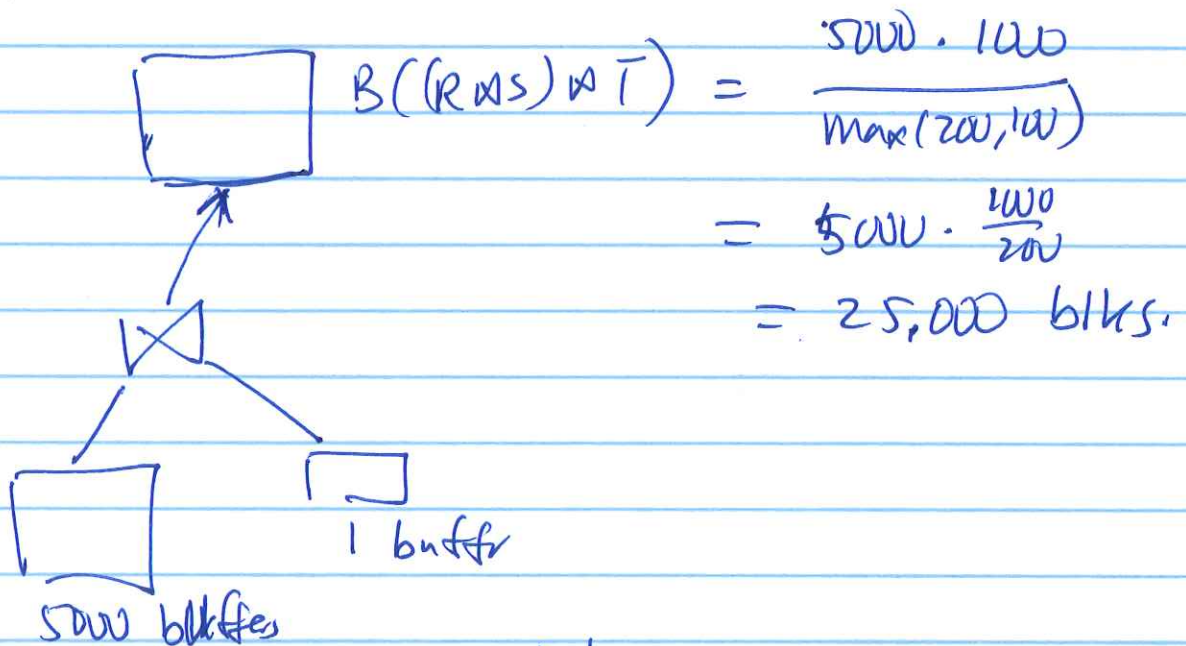 B((R⋈S)⋈T) = 5000 · 1000
max(200,100)
= 5000 · 1000
200
= 25,000 blks.
1 buffr
5000 buffers